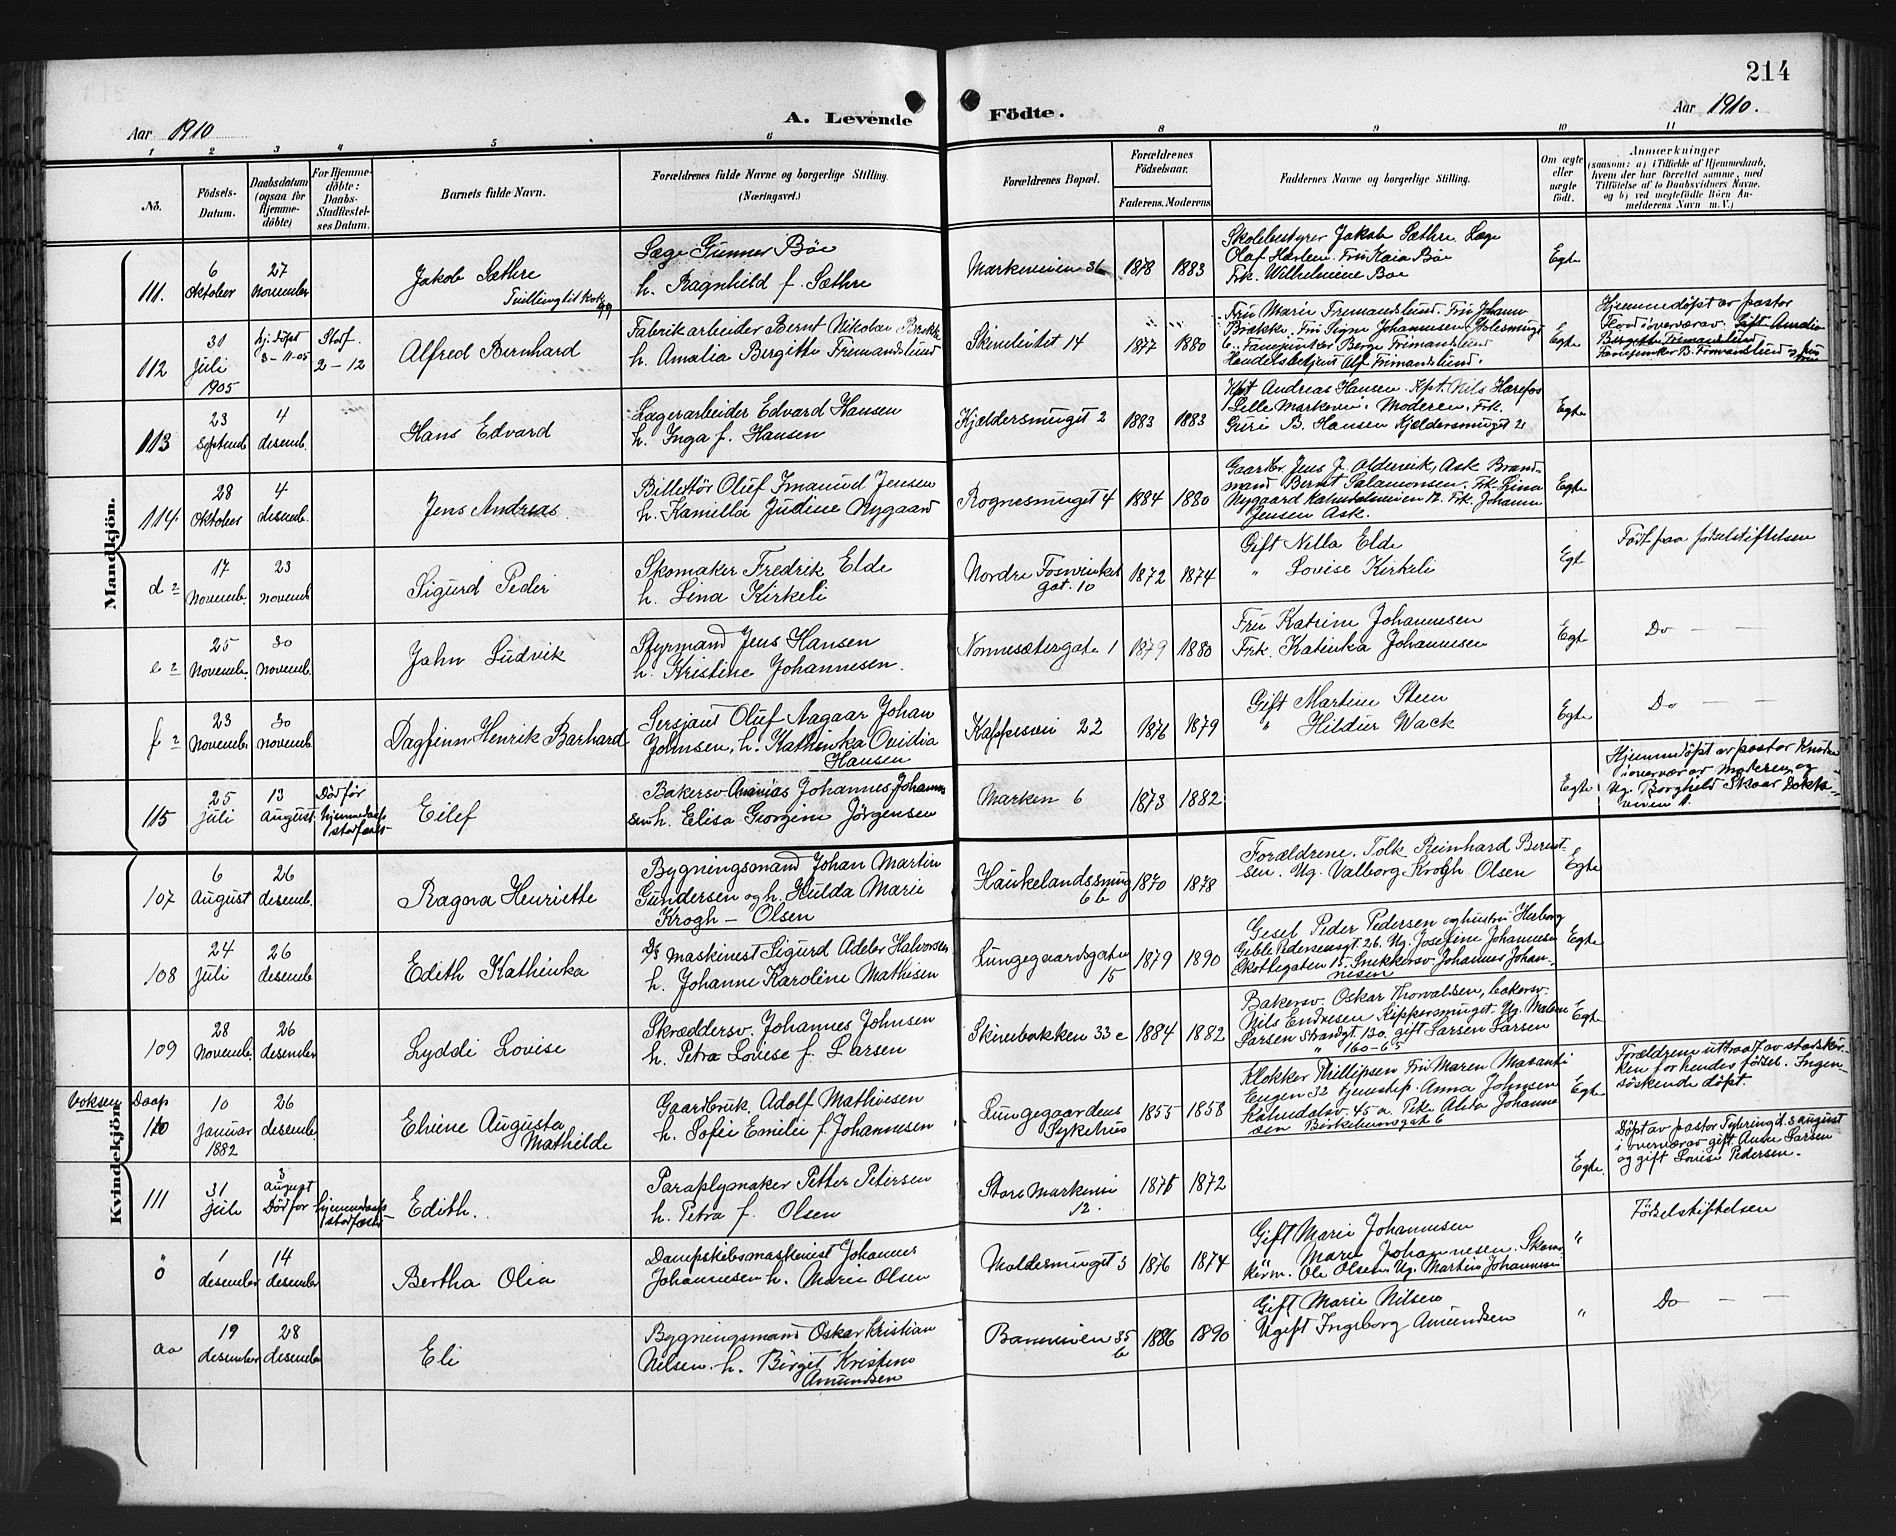 214
Aar 1910
A. Levende Födte.
Aar 1910.
1 2 3 4 5 6 8 9 10 11
No.
Födsels-
Datum.
Daabsdatum
(ogsaa for
Hjemme-
döbte)
For Hjemme-
döbte:
Daabs-
Stadfæstel-
ses Datum.
Barnets fulde Navn.
Forældrenes fulde Navne og borgerlige Stilling.
(Næringsvei.)
Forældrenes Bopæl.
Forældrenes
Födselsaar.
Faderens. Moderens
Faddernes Navne og borgerlige Stilling.
Om ægte
eller
uægte
født.
Anmærkninger
(saasom: a) i Tilfælde af Hjemmedaab,
hvem der har forrettet samme, med
Tilföielse af to Daabsvidners Navne.
og b) ved uægtefödte Börn An-
melderens Navn m. V.)
Mandkjön.
111.
6
Oktober
27
November
Jakob Sæthre
Tvilling til
Læge Gunnar Böe
h. Ragnhild f. Sæthre
Markeveien 36
1878 1883
Skolebestyrer Jakob Sæthre. Læge
Olaf Harlem. Fru Kaia Böe
Frk. Wilhelmine Böe
Egte
112
31
Juli
1905
hj. døpt
3-11-05
Staf.
2-12
Alfred Bernhard
Fabrikarbeider Bernt Nikolai Brekke
h. Amalia Birgitte Fremandslund
Skindeviket 14
1877 1880
Fru Marie Fremandslund. Fru Johann
Brække. Fru Signe Johannesen
6. Fanejunker Berge Frimandslund
Handelsbetjent Alf Frimandslund.
Egte
Hjemmedöpt av pastor
i overvær av. Gift Amalia
Birgitte Frimandslund
Fanejunker B. Fromandslund
113
23
Septemb.
4
desemb.
Hans Edvard
Lagerarbeider Edvard Hansen
h. Inga f. Hansen
Kjældersmuget 2
1883 1883
Kpt. Andreas Hansen. Kpt. Nils Harefos
Lille Markevei. Moderen. Frk.
Guri B. Hansen Kjældersmuget 2
Egte
114.
28
Oktober
4
desemb.
Jens Andreas
Billettör Oluf Imanuel Jensen
h. Kamilla Judine Nygaard
Rognesmuget 4
1884 1880
Gaardbr. Jens J. Oldervik, Ask Brand-
mand Bernt Salamonsen. Frk. Lina
Nygaard Kalvedalsveien 12. Frk. Johanna
Jensen Ask.
Egte
d 2
17
Novemb.
23
novemb.
Sigurd Peder
Skomaker Fredrik Elde
h. Lina Kirkeli
Nordre
gat. 10
1872 1874
Gift Nella Elde
" Lovise Kirkeli
Egt
Födt paa fødselstiftelsen
e 2
25
Novemb.
30
Novemb.
Jahn Ludvik
Styrmand Jens Hansen
h. Kristine Johannesen.
Nonnesætergate 1
1879 1880
Fru Katrine Johannesen
Frk. Katinka Johannesen
Egte
Do — —
f 2
23
Novemb.
30
novemb.
Dagfinn Henrik Barhard
Sersjant Oluf Aagaar Johan
Johnsen, h. Kathinka Ovidia
Hansen
Kappevei 22
1876 1879
Gift Martine Steen
" Hildur Wack
Egte
Do — —
115
25
juli
13
August
Död før
hjemmedaabs
stadfæst.
Eilef
Bakersv. Ananias Johannes Johannes
sen h. Elisa Georgine Jörgensen
Marken 6
1873 1882
Egte
Hjemmedöpt av pastor
i overvær av moderen og
Ug. Borghild Skaar
veien 1.
Kvindekjön
107
6
August
26
desemb.
Ragna Henriette
Bygningsmand Johan Martin
Gundersen og h. Hulda Marie
Krogh - Olsen
Haukelandssmug
6 b
1870 1878
Forældrene. Tolk Reinhard Bernt-
sen. Ug. Valborg Krogh Olsen
Egte
108
24
juli
26
desemb.
Edith Kathinka
D/s maskinist Sigurd Adeler Halvorsen
h. Johanne Karoline Mathisen
Lungegaardsgaten
15
1879 1890
Gesel Peder Pedersen og hustru Herborg
Geble Pedersensgt. 26. Ug. Josefine Johannesen
Skottegaten 15. Snekkersv. Johannes Johan-
nesen
Egte
109
28
Novemb.
26
desember
Lyddi Lovise
Skræddersv. Johannes Johnsen
h. Petra Lovise f. Larsen
Skivebakken 33 c
1884 1882
Bakersv. Oskar Thorvaldsen, bakersv.
Nils Endresen Kippersmuget. Ug. Malene
Larsen Strandgt. 130. gift Larsen Larsen
" 160-65
Egte
Voksen Daap
110
10
januar
1882
26
desemb.
Elvine Augusta
Mathilde
Gaardbruk. Adolf Mathiesen
h. Sofie Emilie f. Johannesen
Lungegaardens
Sykehus
1855 1858
Klokker Phillipsen Fru Maren
Engen 32 tjenestep. Anna Johnsen
Kalvedalsv. 45 a. Alida Johanne
sen Birkelundsgat 6
Egte
Forældrene uttraadt av statskir-
ken for hendes födsel. Ingen
söskende döpt.
111
31
Juli
3
august
Död for
hjemmedaabs
stadfæst.
Edith.
Paraplymaker Petter Petersen
h. Petra f. Olsen
Store Markevei
12.
1875 1872
Egte.
Döpt av pastor Tybring d. 3 august
i overvær av gift Anne Larsen
og gift Lovise Pedersen.
ö
1
desember
14
desember
Bertha Olia
Dampskibsmaskinist Johannes
Johannesen h. Marie Olsen
Moldesmuget 3
1876 1874
Gift Marie Johannesen
" Marie Johannesen. Skom.
Ole Olsen. Ug. Martin Johannesen
"
Fødselstiftelsen
aa
19
desember
28
desember
Eli
Bygningsmand Oskar Kristian
Nilsen. h. Birgit Kristine
Amundsen
Baneveien 35
b
1886 1890
Gift Marie Nilsen
Ugift Ingeborg Amundsen
"
Do — —